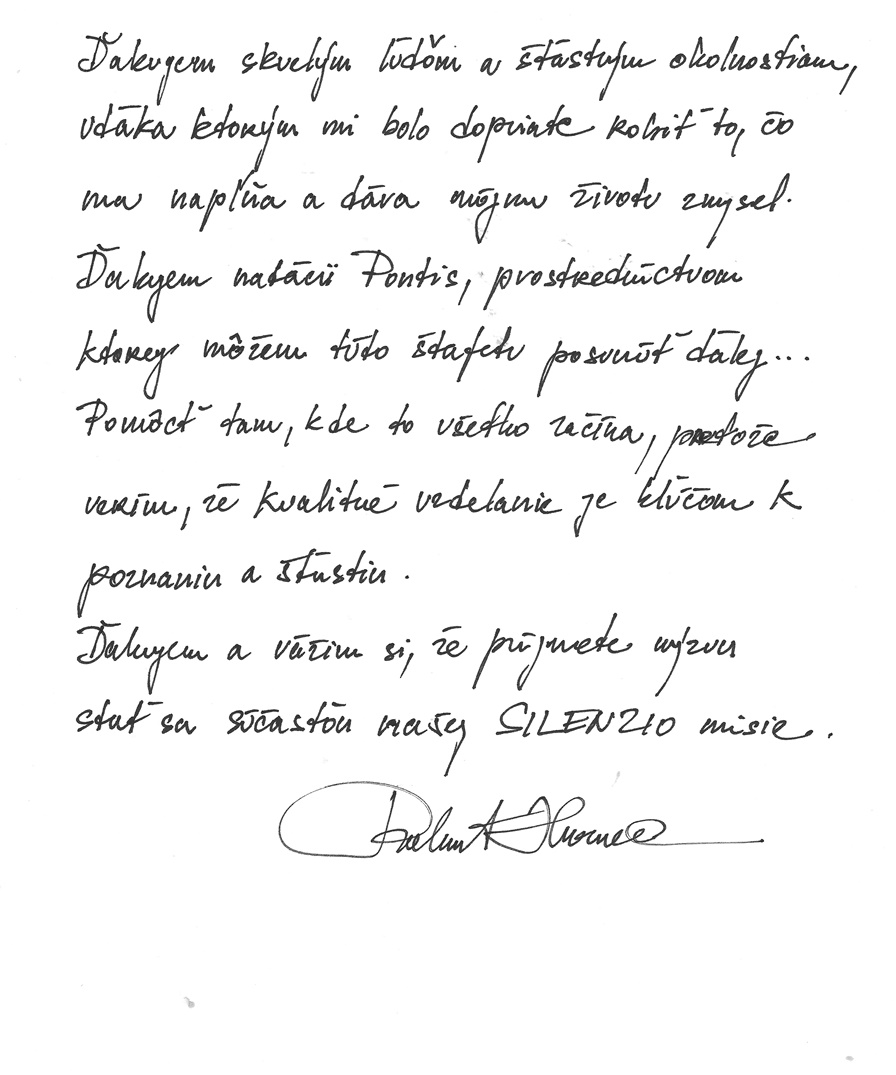 Ďakujem skvelým ľuďom a šťastným okolnostiam,
vďaka ktorým mi bolo dopriate robiť to, čo
ma napĺňa a dáva môjmu životu zmysel.
Ďakujem nadácii Pontis, prostredníctvom
ktorej môžem túto štafetu posunúť ďalej...
Pomôcť tam, kde to všetko začína, pretože
verím, že kvalitné vzdelanie je kľúčom k
poznaniu a šťastiu.
Ďakujem a vážim si, že prijmete výzvu
stať sa súčasťou našej SILENZIO misie.